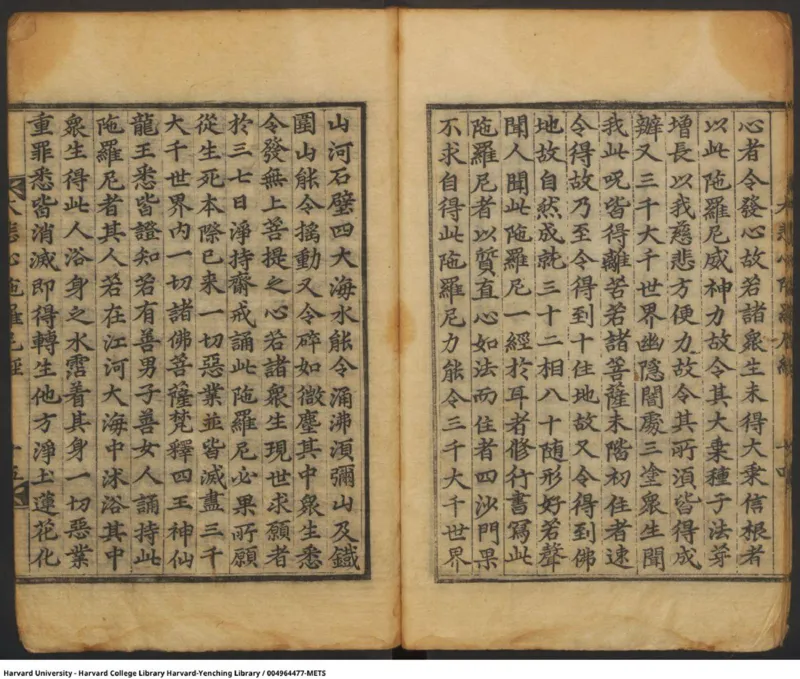 心者令發心故若諸衆生未得大乗信根者
以此陁羅尼威神力故令其大乗種子法芽
增長以我慈悲方便力故令其所湏皆得成
辦又三千大千世界幽隱闇處三塗衆生聞
我此呪皆得離苦若諸菩薩未階初住者速
令得故乃至令得到十住地故又令得到佛
地故自然成就三十二相八十随形好若聲
聞人聞此陁羅尼一經於耳者修行書寫此
陁羅尼者以質直心如法而住者四沙門果
不求自得此陁羅尼力能令三千大千世界
山河石壁四大海水能令涌沸湏彌山及鐵
圍山能令搖動又令碎如微塵其中衆生悉
令發無上菩提之心若諸衆生現世求願者
於三七日淨持齋戒誦此陁羅尼必果所願
從生死本際已来一切惡業並皆滅盡三千
大千世界內一切諸佛菩薩梵釋四王神仙
龍王悉皆證知若有善男子善女人誦持此
陁羅尼者其人若在江河大海中沐浴其中
衆生得此人浴身之水霑着其身一切惡業
重罪悉皆消滅即得轉生他方淨土蓮花化
大悲心陁羅尼經
Harvard University - Harvard College Library Harvard-Yenching Library / 004964477-METS